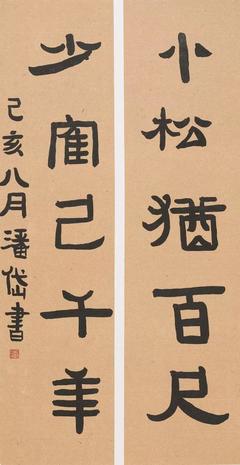 小松猶百尺
少寉已千年
己亥八月潘岱書